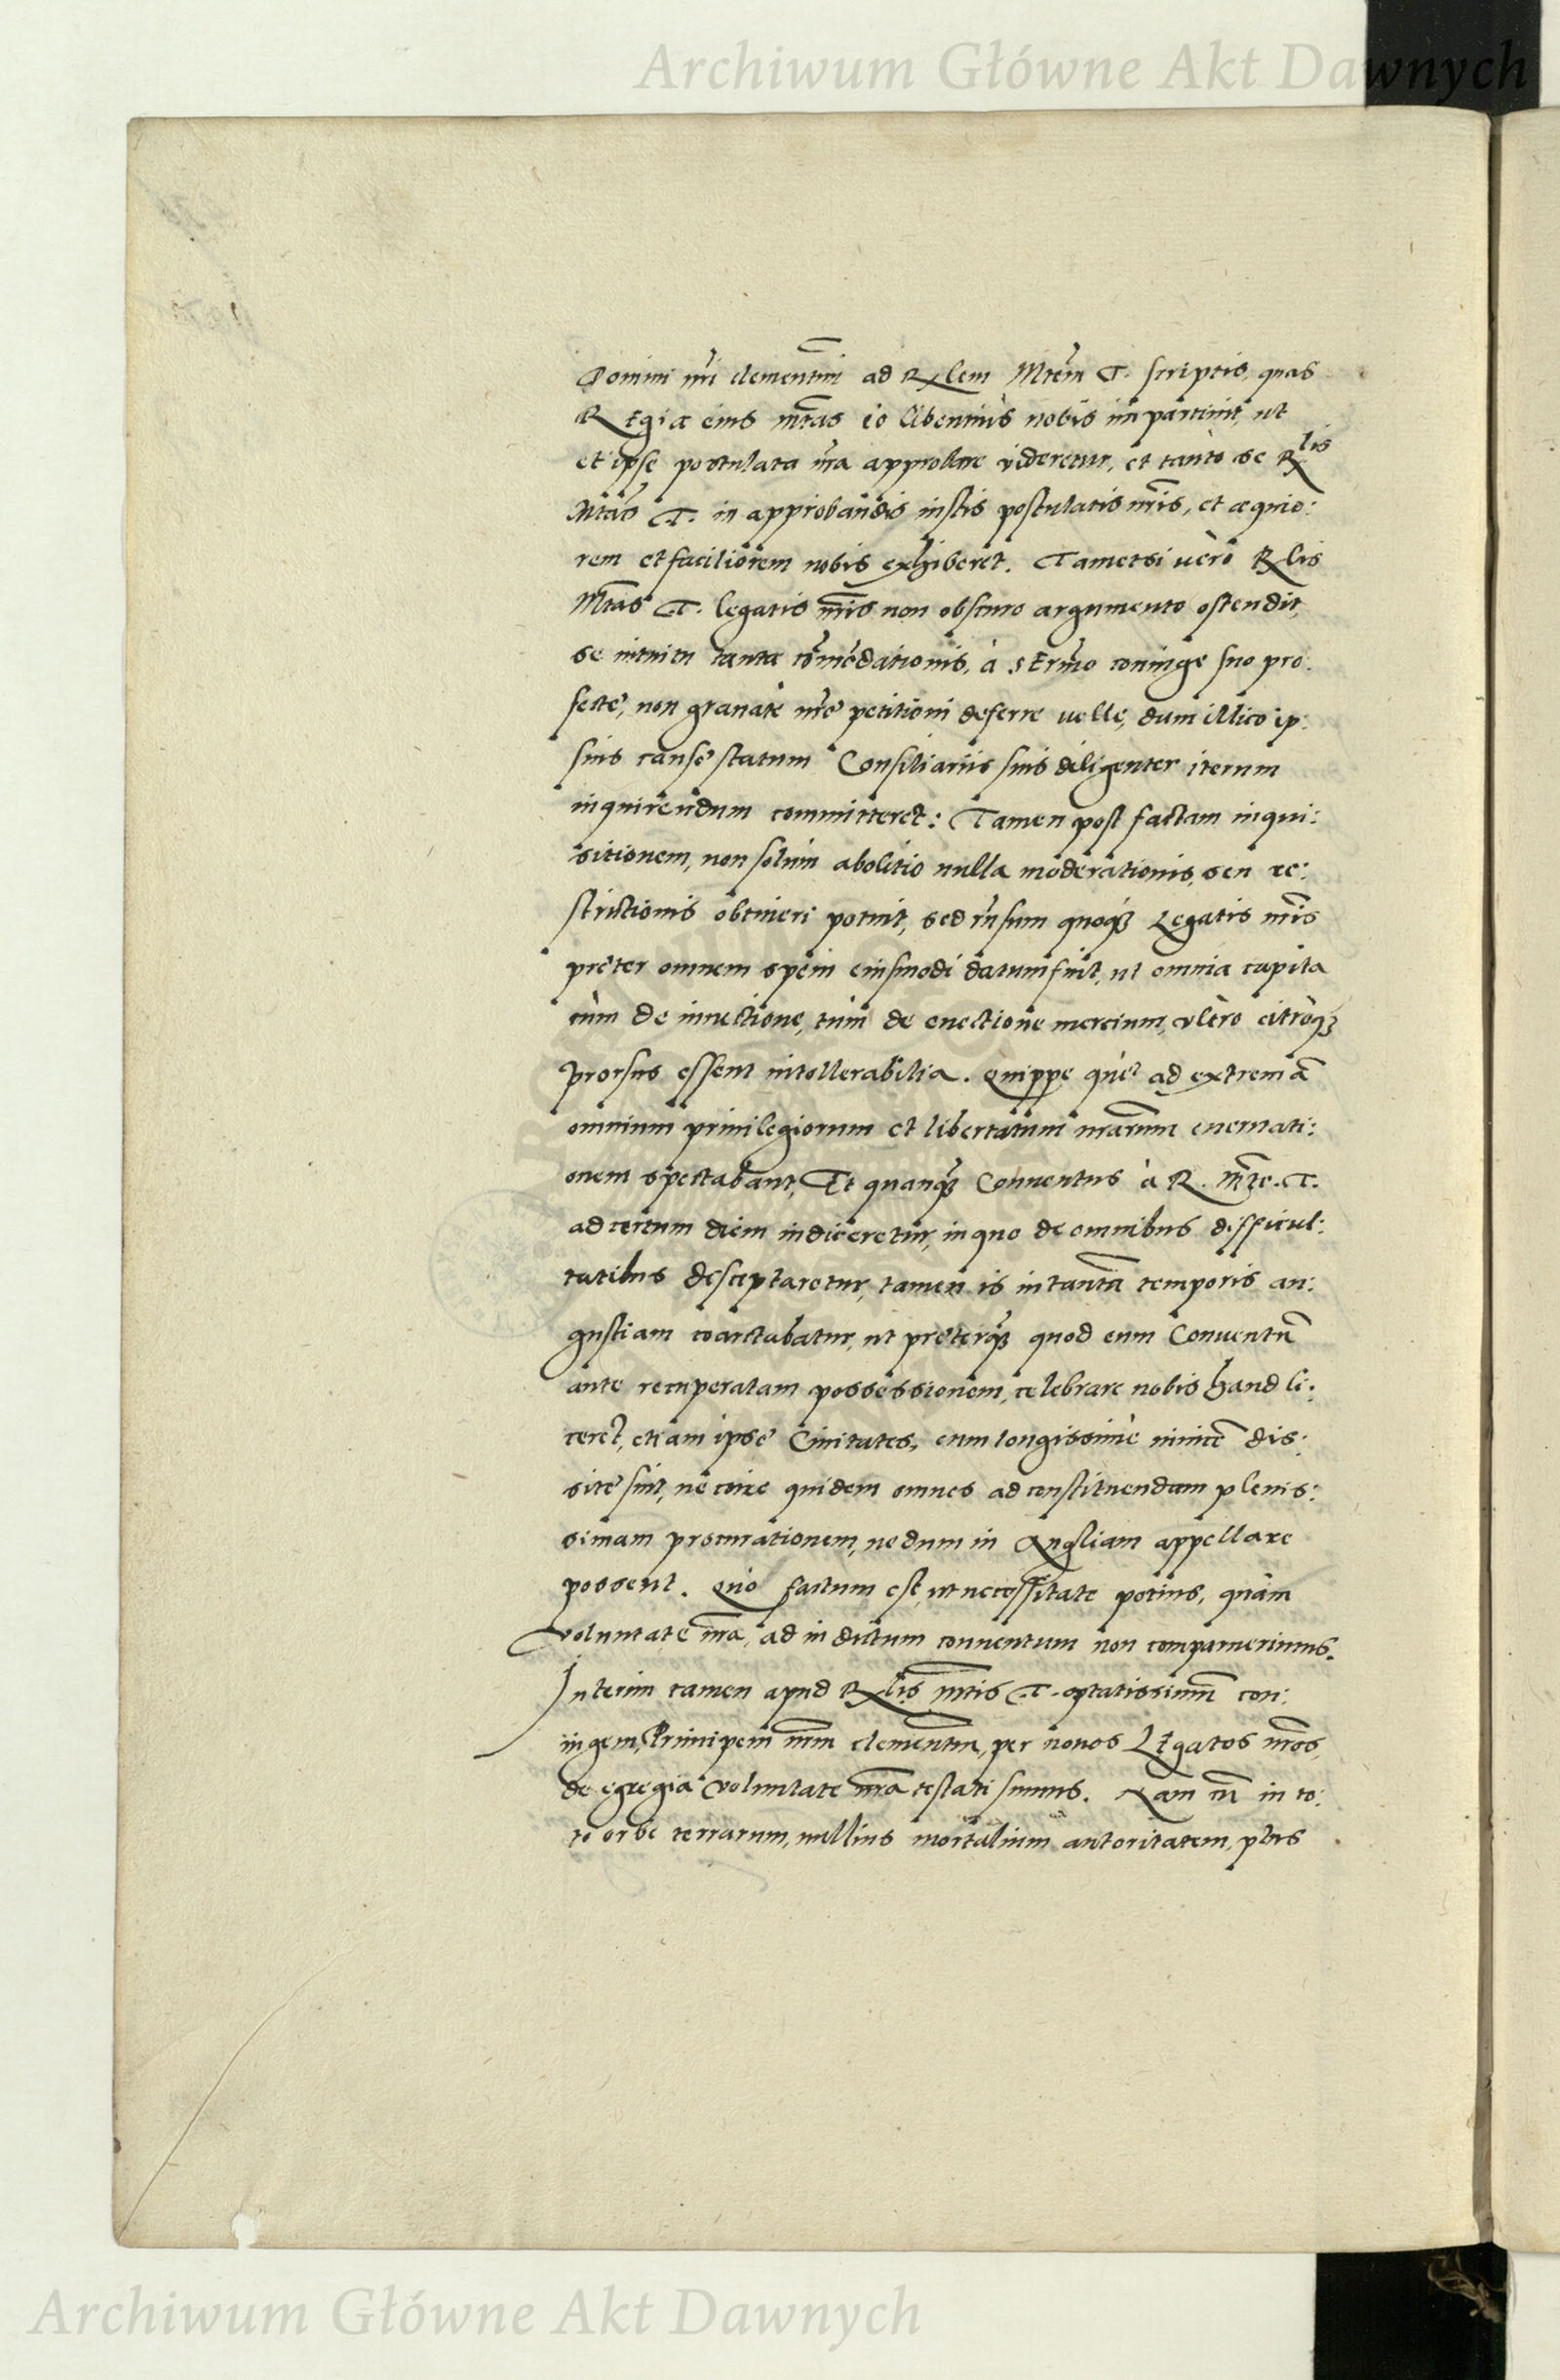 Archiwum Główne Akt Dawnych
Domini nri clementmi ad Rxlem Mtem T. scriptis, quas
Regia eius mtas eo libentius nobis impartiuit, ut
et ipse postulata nra approbare videretur, et tanto se Rxlis
Mtas T. in approbandis iustis postulatis nris, et æquio:
rem et faciliorem nobis exhiberet. Tametsi uero Rxlis
Mtas T. legatis nris non obscuro argumento ostendit,
se intuitu tantæ comẽdationis, à sermo coniuge suo pro:
fectę, non grauatè nrę petitioni deferre uelle, dum illico ip:
sius causę statum Consiliariis suis diligenter iterum
inquirendum committeret: Tamen post factam inqui:
sitionem, non solum abolitio nulla moderationis, seu re:
strictionis obtineri potuit, sed rursum quoqȝ Legatis nris
pręter omnem spem eiusmodi datum fuit, ut omnia capita
tùm de inuectione, tùm de euectione mercium, vltro citroqȝ
prorsus essent intollerabilia. Quippe quę ad extremã
omnium priuilegiorum et libertatum nrarum eneruati:
onem spectabant, Et quanqȝ Conuentus à R. Mte. T.
ad certum diem indiceretur, in quo de omnibus difficul:
tatibus desceptaretur, tamen is in tantã temporis an:
gustiam coarctabatur, ut pręterqȝ quod eum Conuentũ
ante recuperatam possessionem, celebrare nobis haud li:
ceret, etiam ipsę Ciuitates, cum longissimè inuicẽ dis:
sitę sint, ne coire quidem omnes ad constituendam plenis:
simam procurationem, nedum in Angliam appellare
possent. Quo factum est, ut necessitate potius, quàm
voluntate nra, ad indictum conuentum non comparuerimus.
Interim tamen apud Rxlis mtis T. optatissimũ con:
iugem, Principem nrm clementm, per nouos Legatos nros,
de egregia voluntate nra testati sumus. Nam cũ in to:
to orbe terrarum, nullius mortalium autoritatem, plus
Archiwum Główne Akt Dawnych